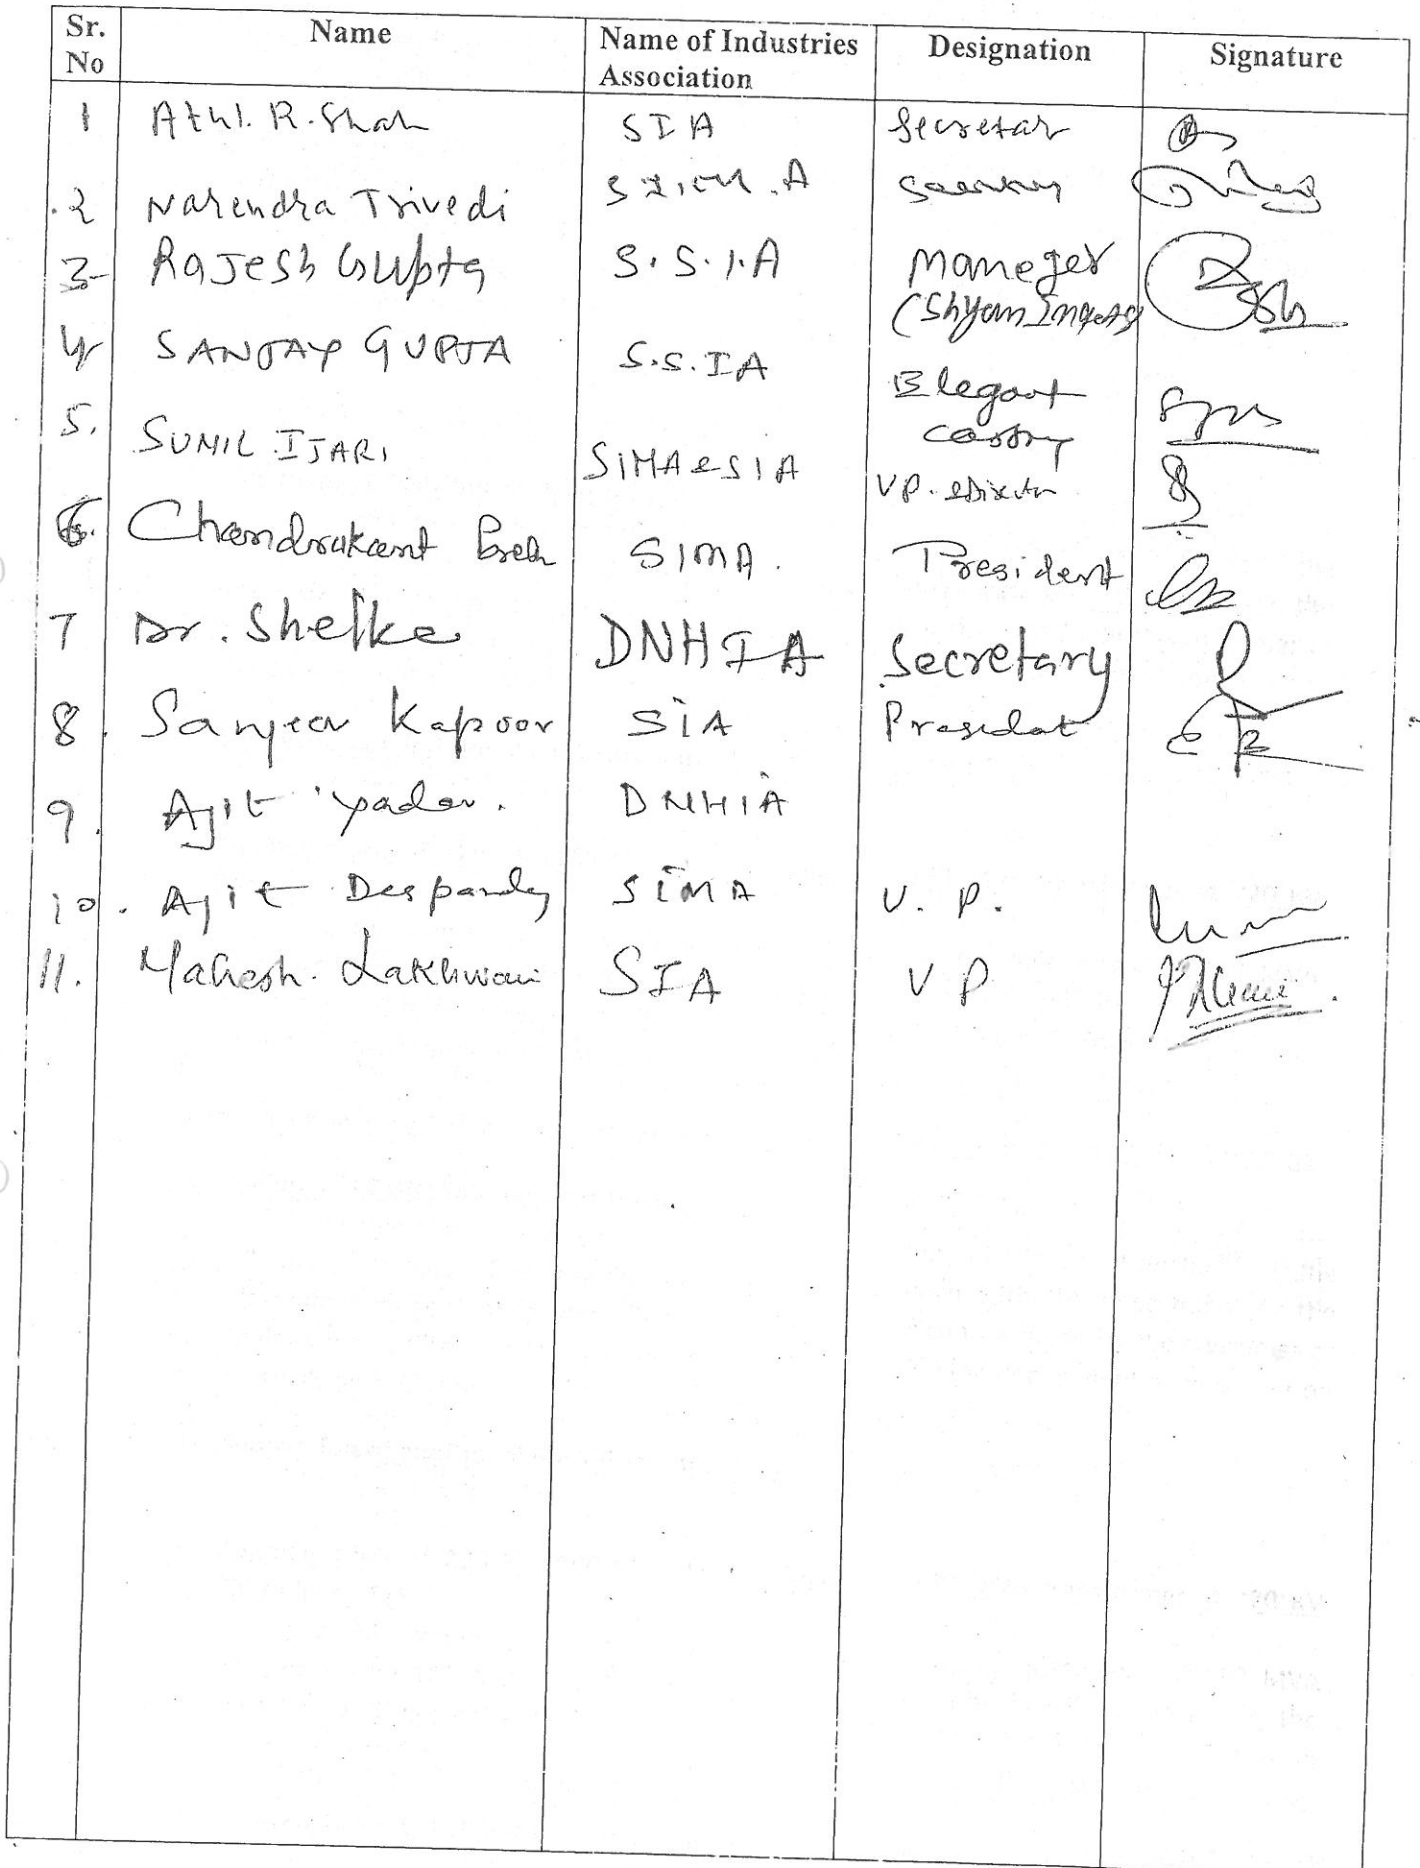 Sr. No Name Name of Industries Association Designation Signature
1 Atul. R. Shah SIA Secretar
2 Narendra Trivedi Secretary
3 Rajesh Gupta S.S.I.A Maneger
(Shyam
4 SANJAY GUPTA S.S.IA Elegant
5. SUNIL IJARI SiMA & SIA VP.
6. Chandrakant SIMA. President
7 Dr. Shelke DNHIA Secretary
8. Sanjeev Kapoor SIA Presidat
9. Ajit Yadav. DNHIA
10. Ajit Despandey SIMA V. P.
11. Mahesh. Lakhwani SIA V P